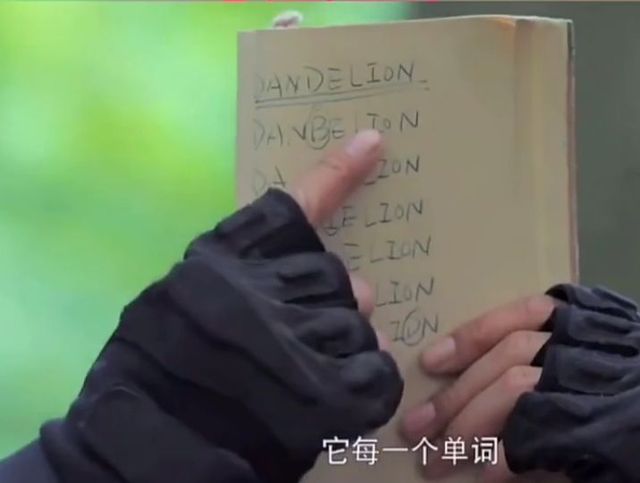 DANDELION
DANBELION
DA LION
ELION
ELION
LION
它每一个单词